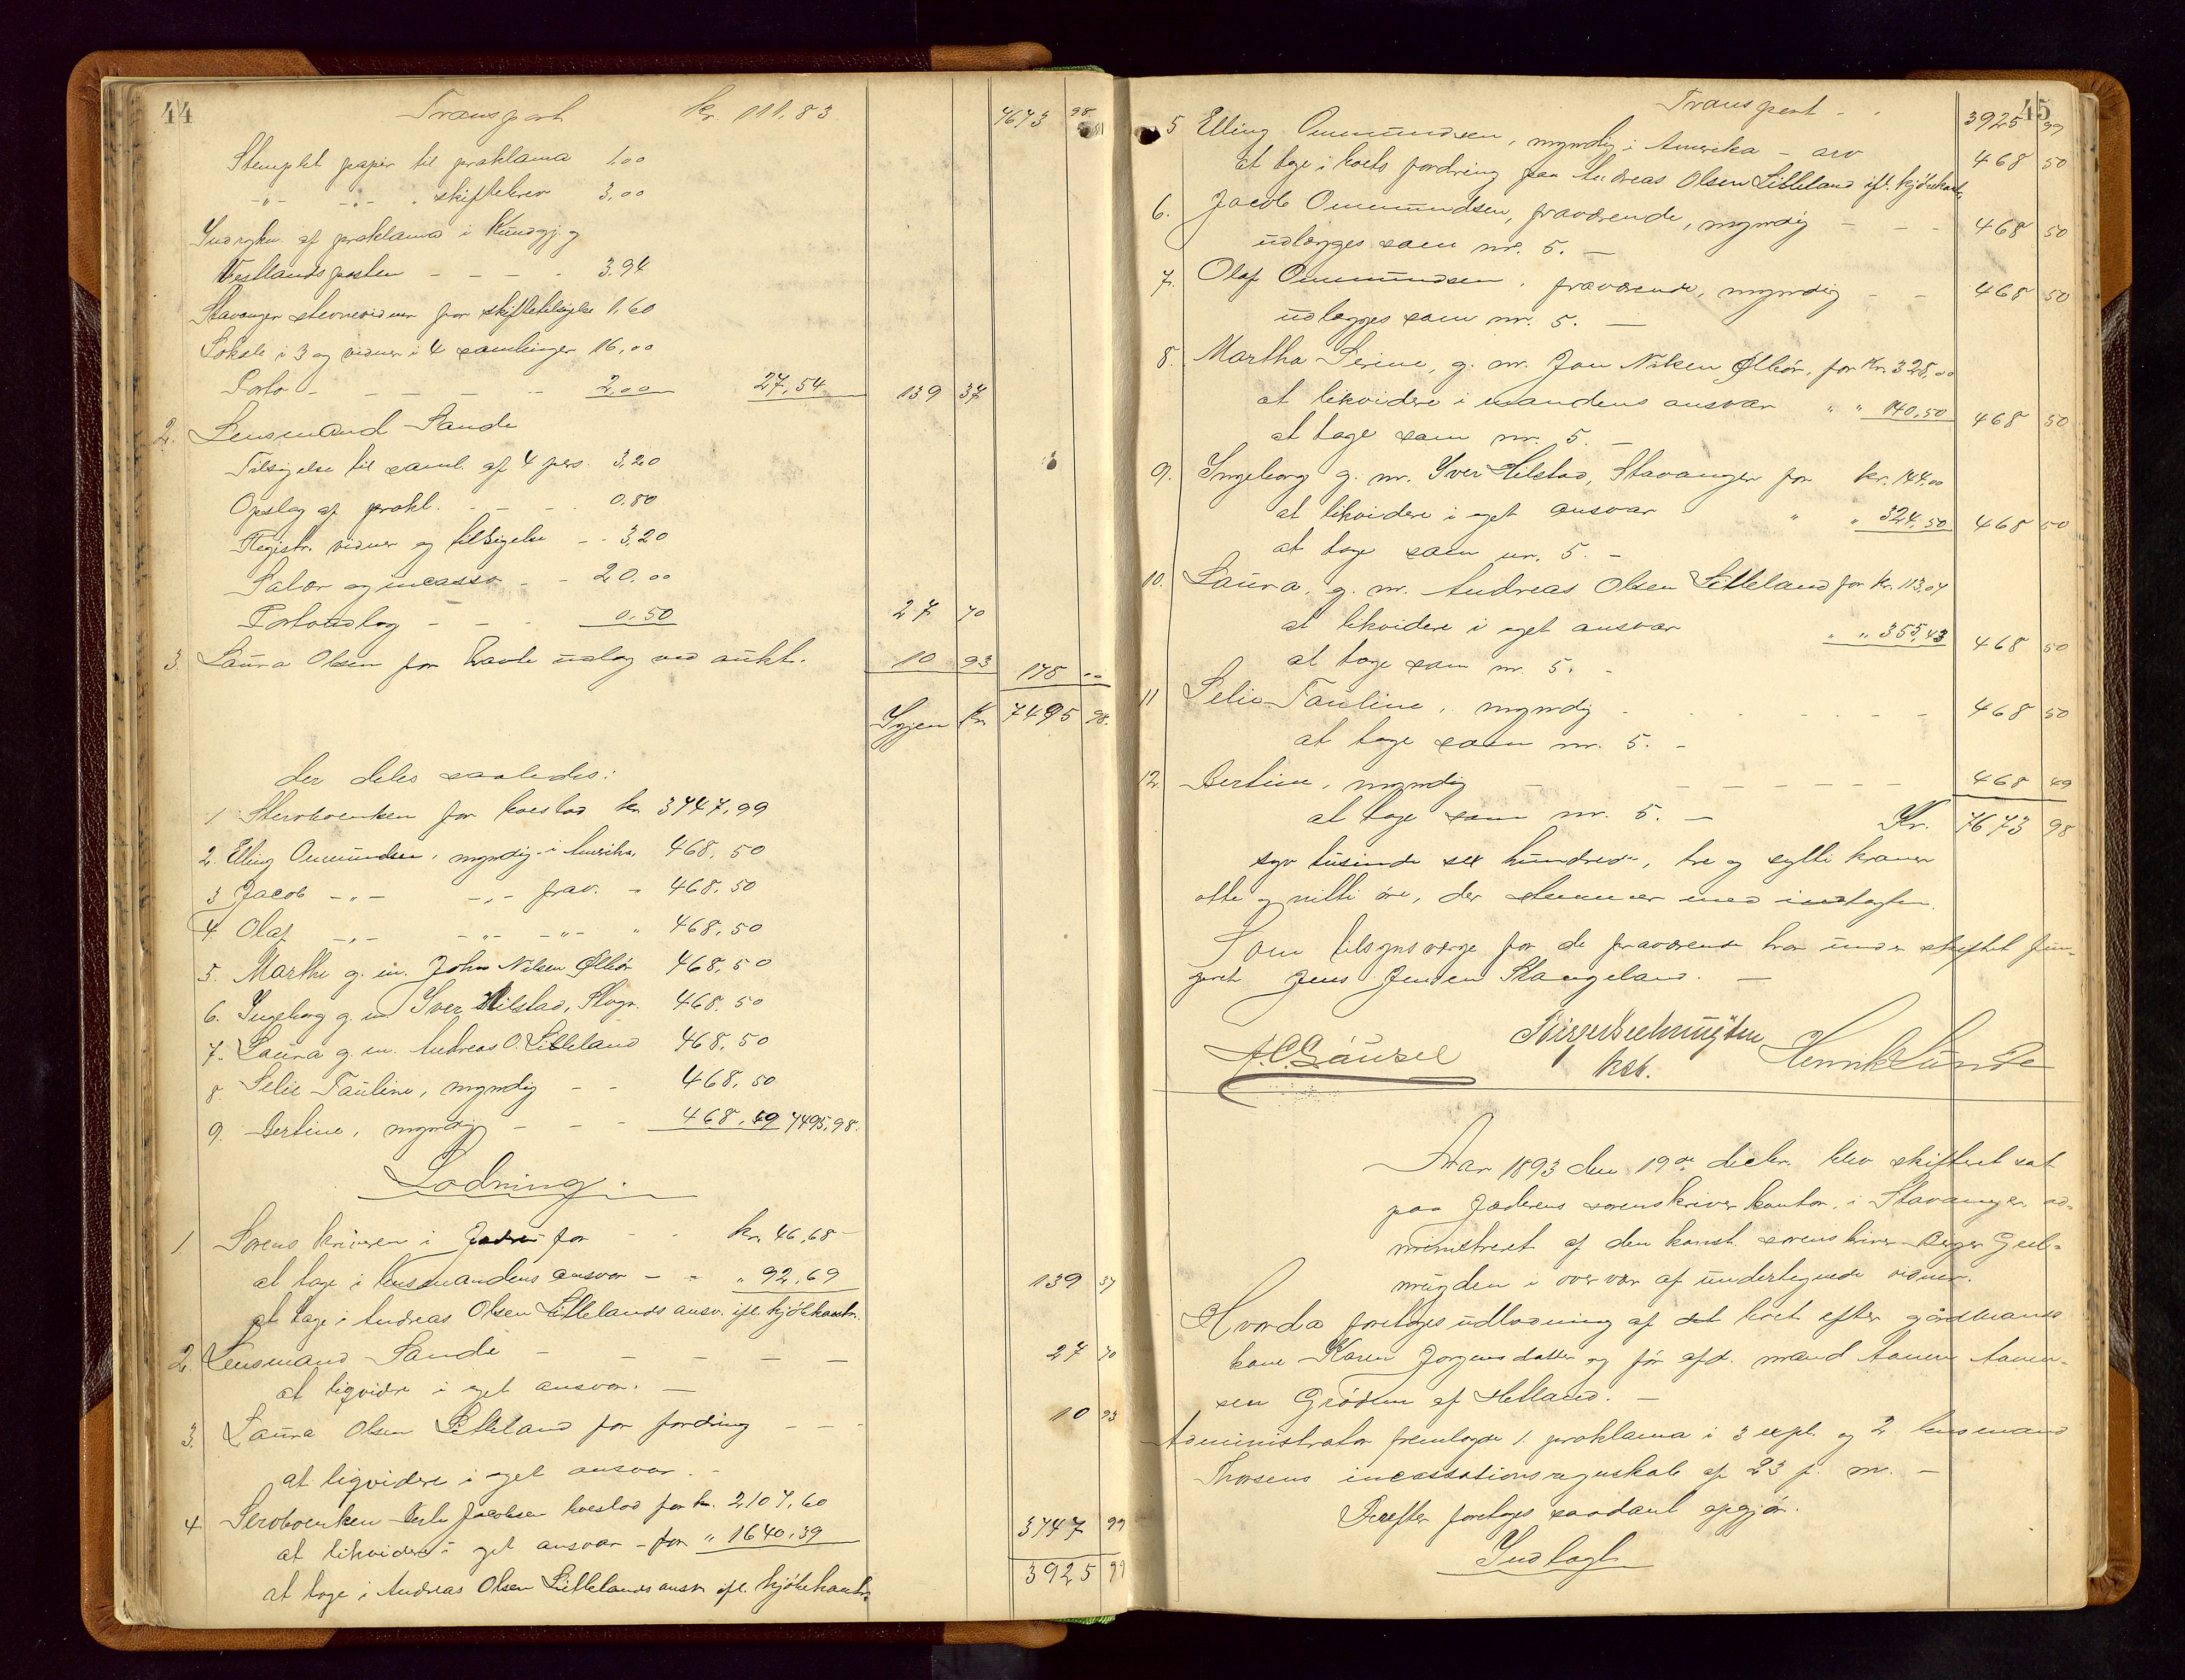 44
Transport kr. 111,83 7673 98
Stemplet papir til proklama 1,00
-"- -"- skiftebrev 3,00
Indrykn. af proklama i Kundgj. og
Vestlandsposten - - - - 3,94
Stavanger stevnevidner for skiftetilsigelse 1,60
Lokale i 3 og vidner i 4 samlinger 16,00
Porto - - - - - 2,00 27,54 139 37
2. Lensmand Sande
Tilsigelse til saml. af 4 pers. 3,20
Opslag af prokl. - - - 0,80
Registr. vidner og tilsigelse - - 3,20
Salær og incasso - - 20,00
Portoudlæg - - - 0,50 27 70
3. Laura Olsen for havte udlæg ved aukt. 10 93 178 00
Igjen Kr. 7495 98.
der deles saaledes:
1 Sterboenken for boeslod kr 3747,99
2. Elling Ommundsen, myndig i Amerika, 468,50
3 Jacob -"- -"- frav. - 468,50
4 Olaf -"- -"- -"- " 468,50
5. Marthe g. m. John Nilsen Ølbør 468,50
6. Ingeborg g. m. Iver Hilstad, Stvgr. 468,50
7. Laura g. m. Andreas O. Litleland 468,50
8. Selie Pauline, myndig - - 468,50
9. Bertine, myndig - - - 468,49 7495,98.
Lodning.
1. Sorenskriveren i Jædren for - - kr. 46,68
at tage i lensmandens ansvar - - " 92,69 139 37
at tage i Andreas Olsen Litlelands ansv. ifl. kjøbekontr.
2. Lensmand Sande - - - - - 27 70
at liqvidere i eget ansvar. -
3. Laura Olsen Litleland for fordring - - - 10 93
at liqvidere i eget ansvar. -
4 Sterboenken Jacobsen boeslod for kr. 2107,60
at likvidere i eget ansvar - for " 1640,39 3747 99
at tage i Andreas Olsen Litlelands ansv. ifl. kjøbekontr. 3925 99
45
Transport - - 3925 99
5 Elling Ommundsen, myndig i Amerika - arv 468 50
at tage i boets fordring paa Andreas Olsen Litleland ifl. kjøbekontr.
6. Jacob Ommundsen, fraværende, myndig - - - 468 50
udlægges som nr. 5. -
7. Olaf Ommundsen, fraværende, myndig - - 468 50
udlægges som nr. 5. -
8. Martha Serine, g. m. Jon Nilsen Ølbør, for kr. 328,00
at likvidere i mandens ansvar " " 140,50 468 50
at tage som nr. 5. -
9. Ingeborg g. m. Iver Hilstad, Stavanger for kr. 144,00
at likvidere i eget ansvar " " 324,50 468 50
at tage som nr. 5. -
10. Laura, g. m. Andreas Olsen Litleland for kr. 113,07
at likvidere i eget ansvar " " 355,43 468 50
at tage som nr. 5. -
11 Selie Pauline, myndig - - - - - - 468 50
at tage som nr. 5. -
12. Bertine, myndig - - - - - - - 468 49
at tage som nr. 5. - Kr. 7673 98
syv tusinde sex hundrede, tre og sytti kroner
otte og nitti øre, der stemmer med indtagten.
Som tilsynsværge for de fraværende har under skiftet fun-
geret Jens Jensen Stangeland. -
A.C. Gausel kst. Henrik Lunde
Aar 1893 den 19de decbr. blev skifteret sat
paa Jæderens sorenskriverkontor, i Stavanger, ad-
ministreret af den konst. sorenskriver Birger Geel-
muyden i overvær af undertegnede vidner.
Hvorda foretoges udlodning af det boet efter gårdmands
kone Karen Jørgensdatter og før afd. mand Aanen Aanen-
sen Grødem af Helland. -
Administrator fremlagde 1 proklama i 3 expl. og 2 lensmand
Thorsens incassationsregnskab af 23 f. m. -
Derefter foretoges saadant opgjør.
Indtægt